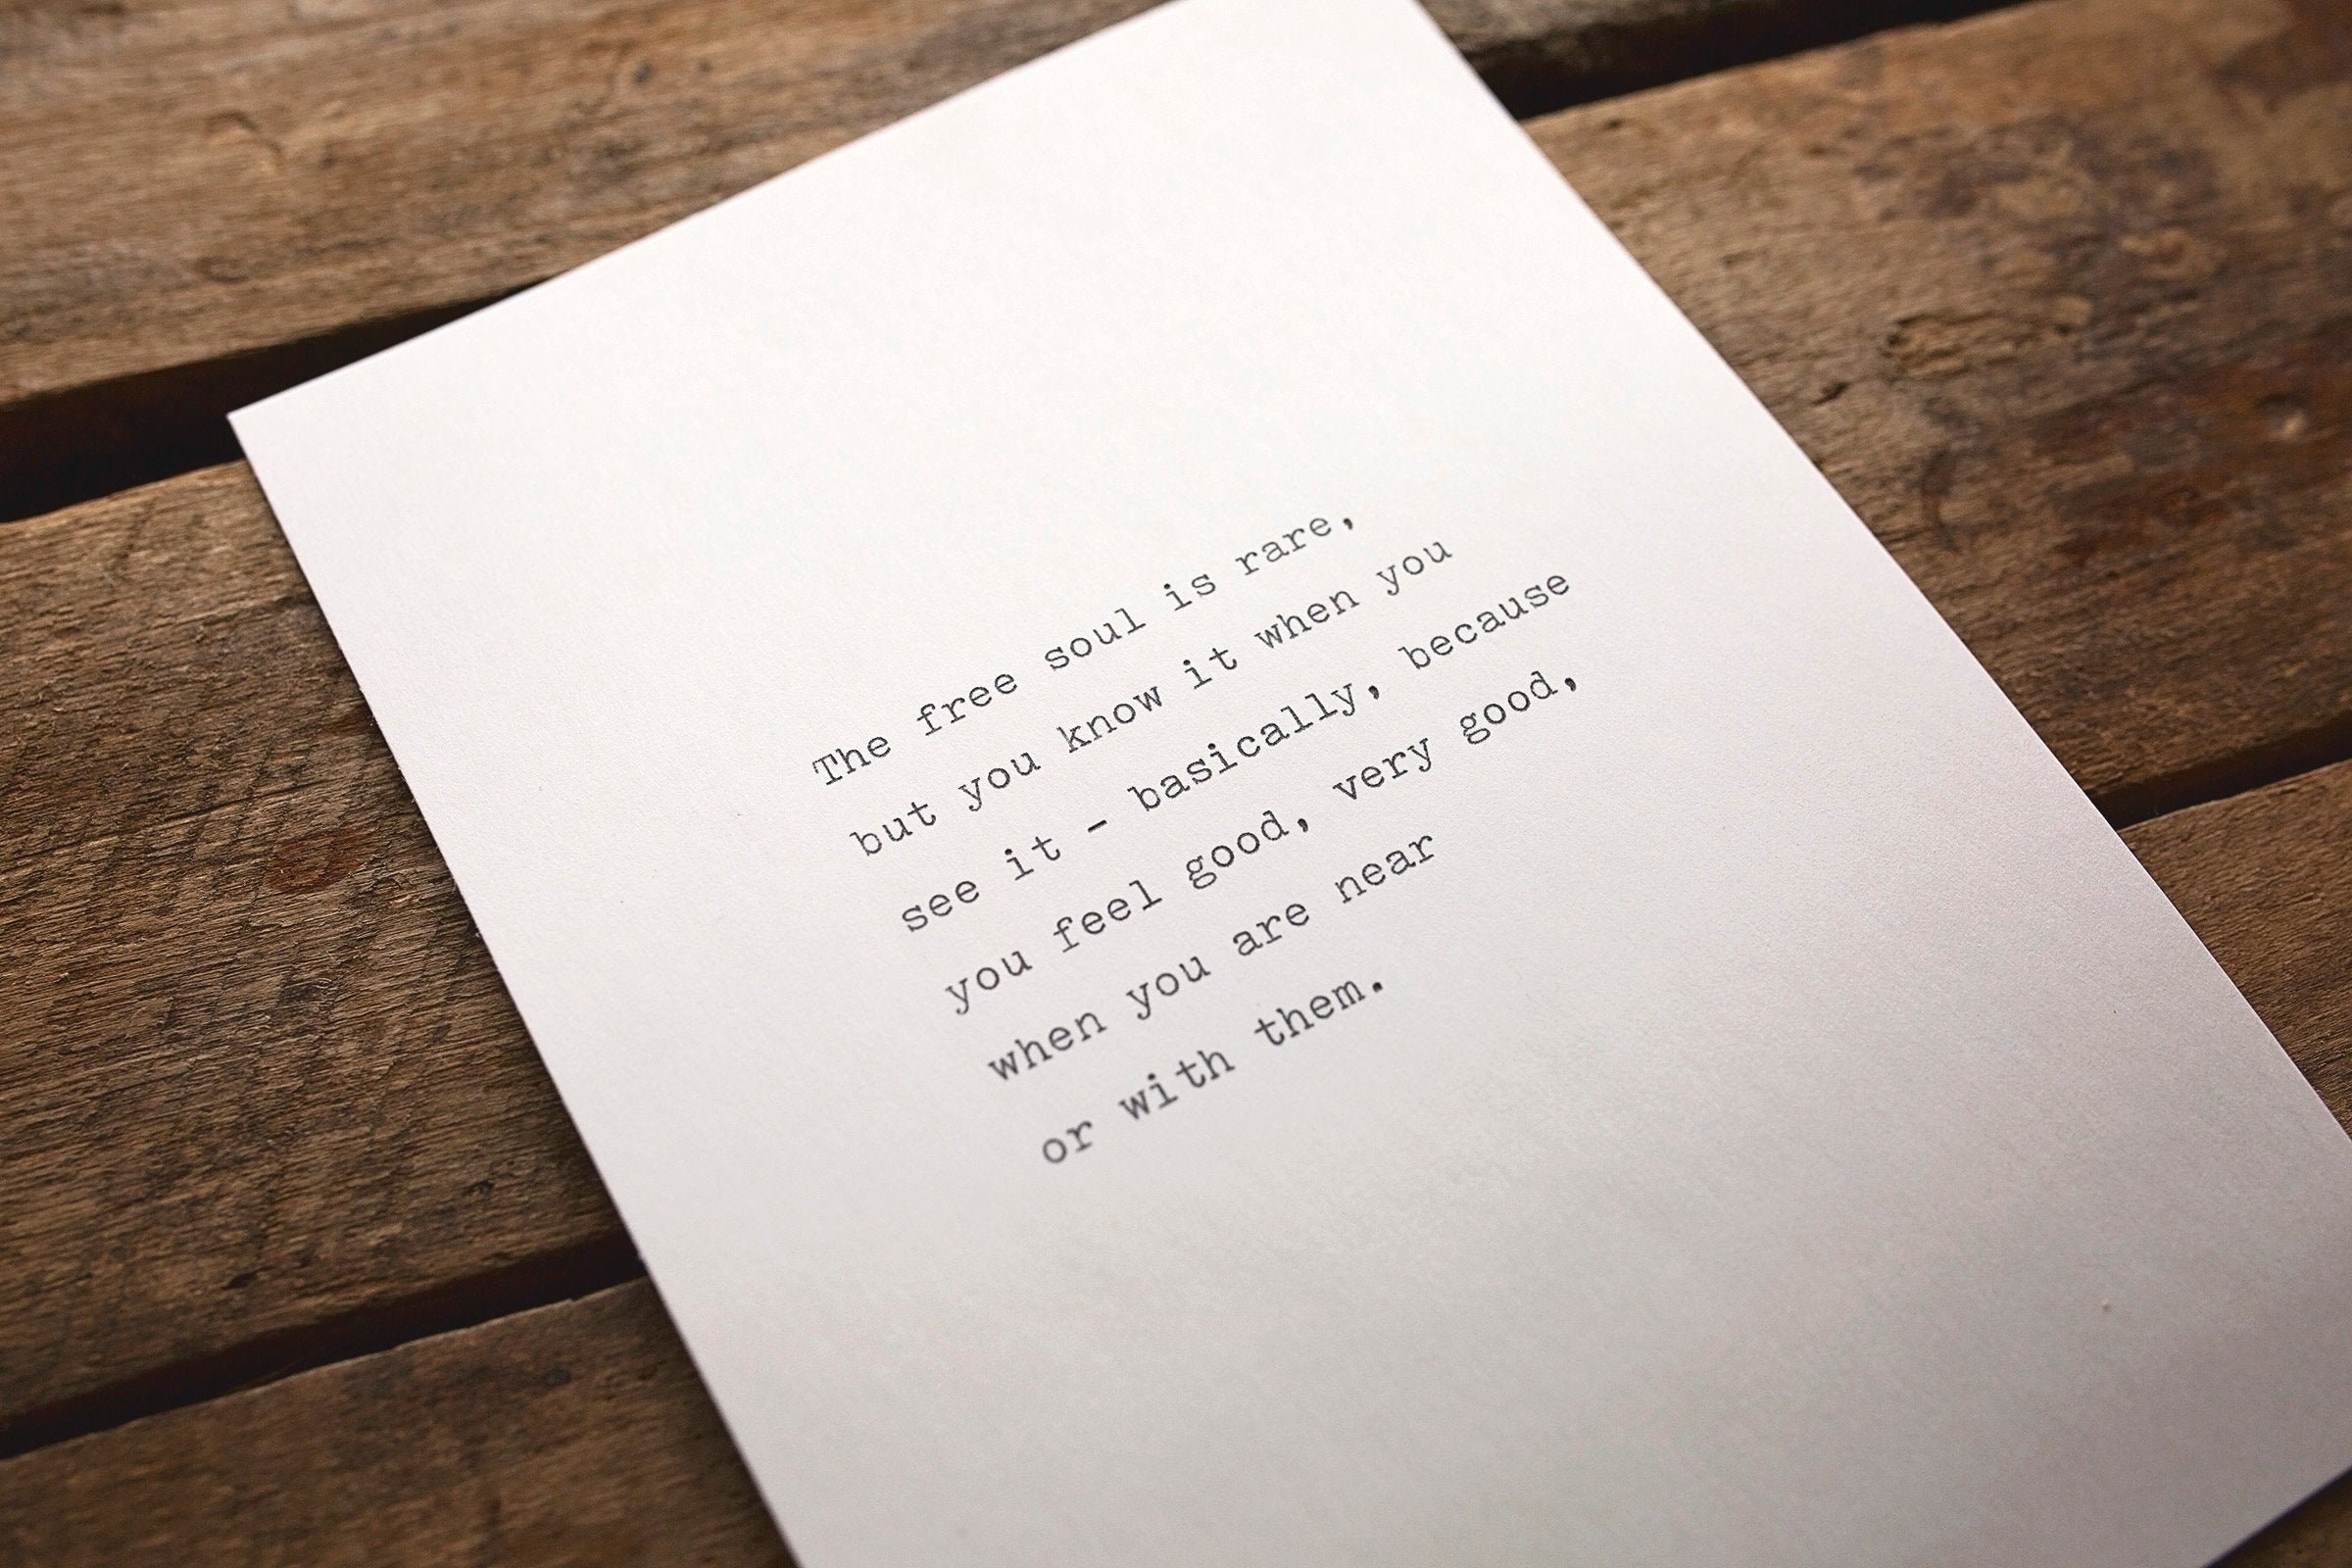 The free soul is rare,
but you know it when you
see it - basically, because
you feel good, very good,
when you are near
or with them.